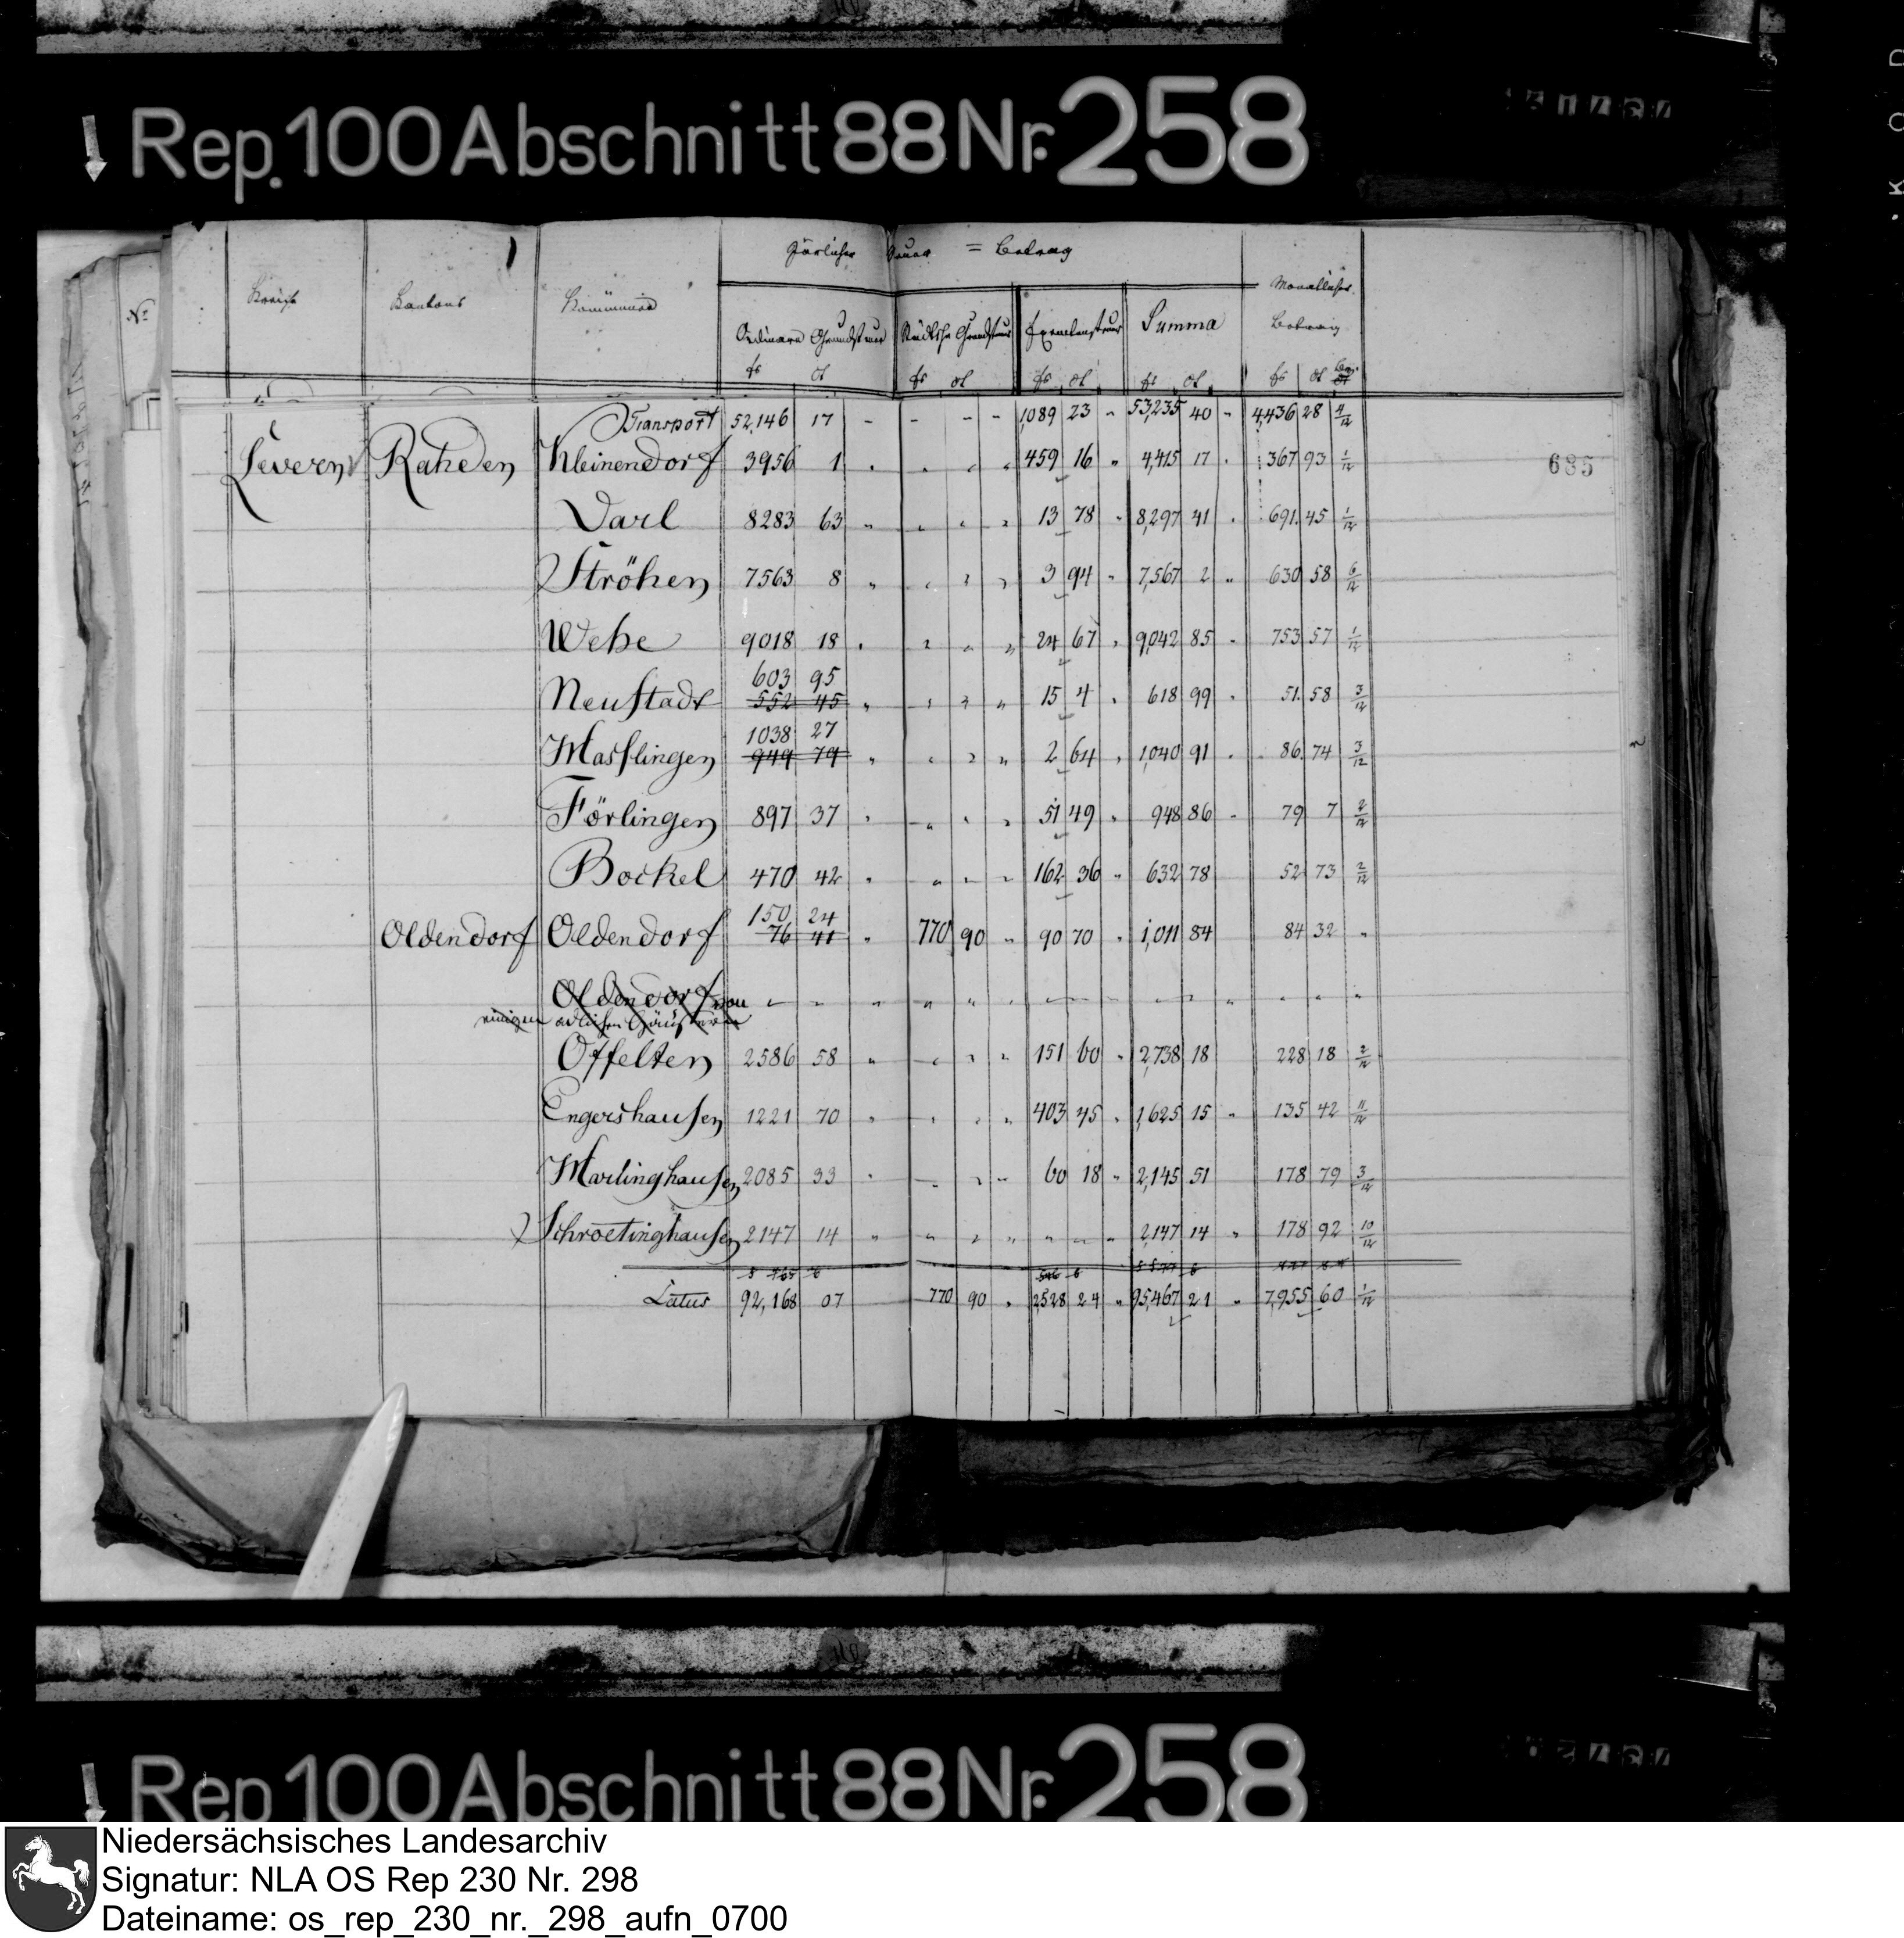 Rep. 100 Abschnitt 88 Nr. 258
Järlicher Steuer = Betrag
No Kreise Kantons Kommunen Ordinaire Grundsteuer Städtsche Grundsteuer Exemtensteuer Summa Monatlicher Betrag
fr ct fr ct fr ct fr ct fr ct
Transport 52,146 17 - - - - 1,089 23 " 53,235 40 - 4,436 28 4/12
Levern Rahden Kleinendorf 3956 1 " " " " 459 16 " 4,415 17 " 367 93 1/12
685
Varl 8283 63 " " " " 13 78 " 8,297 41 " 691. 45 1/12
Ströhen 7563 8 " " " " 3 94 " 7,567 2 " 630 58 6/12
Wehe 9018 18 " " " " 24 67 " 9,042 85 " 753 57 1/12
603 95
Neustadt 552 45 " " " " 15 4 " 618 99 " 51. 58 3/12
1038 27
Masslingen 949 79 " " " " 2 64 " 1,040 91 " 86. 74 3/12
Förlingen 897 37 " " " " 51 49 " 948 86 " 79 7 2/12
Bockel 470 42 " " " " 162 36 " 632 78 52 73 2/12
150 24
Oldendorf Oldendorf 76 41 " 770 90 " 90 70 " 1,011 84 84 32 "
Oldendorf von " " " " " " " " " " " " " " "
einigen adlichen Häusern
Offelten 2586 58 " " " " 151 60 " 2,738 18 228 18 2/12
Engershausen 1221 70 " " " " 403 45 " 1,625 15 " 135 42 11/12
Marlinghausen 2085 33 " " " " 60 18 " 2,145 51 178 79 3/12
Schroetinghausen 2147 14 " " " " " " " 2,147 14 " 178 92 10/12
Latus 92,168 07 770 90 " 2,528 24 " 95,467 21 " 7,955 60 1/12
Rep 100 Abschnitt 88 Nr. 258
Niedersächsisches Landesarchiv
Signatur: NLA OS Rep 230 Nr. 298
Dateiname: os_rep_230_nr._298_aufn_0700